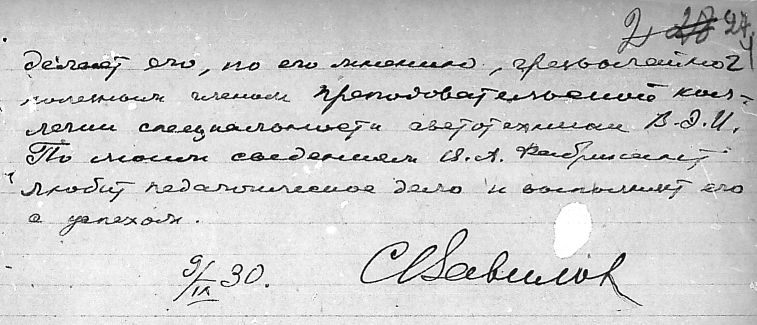 делает его, по его мнению, чрезвычайно
полезным членом преподовательской кол-
легии специальности светотехники В.Э.И.
По моим сведениям В.А. Фабрикант
любит педагогическое дело и выполняет его
с успехом.
9/IX 30. С Вавилов